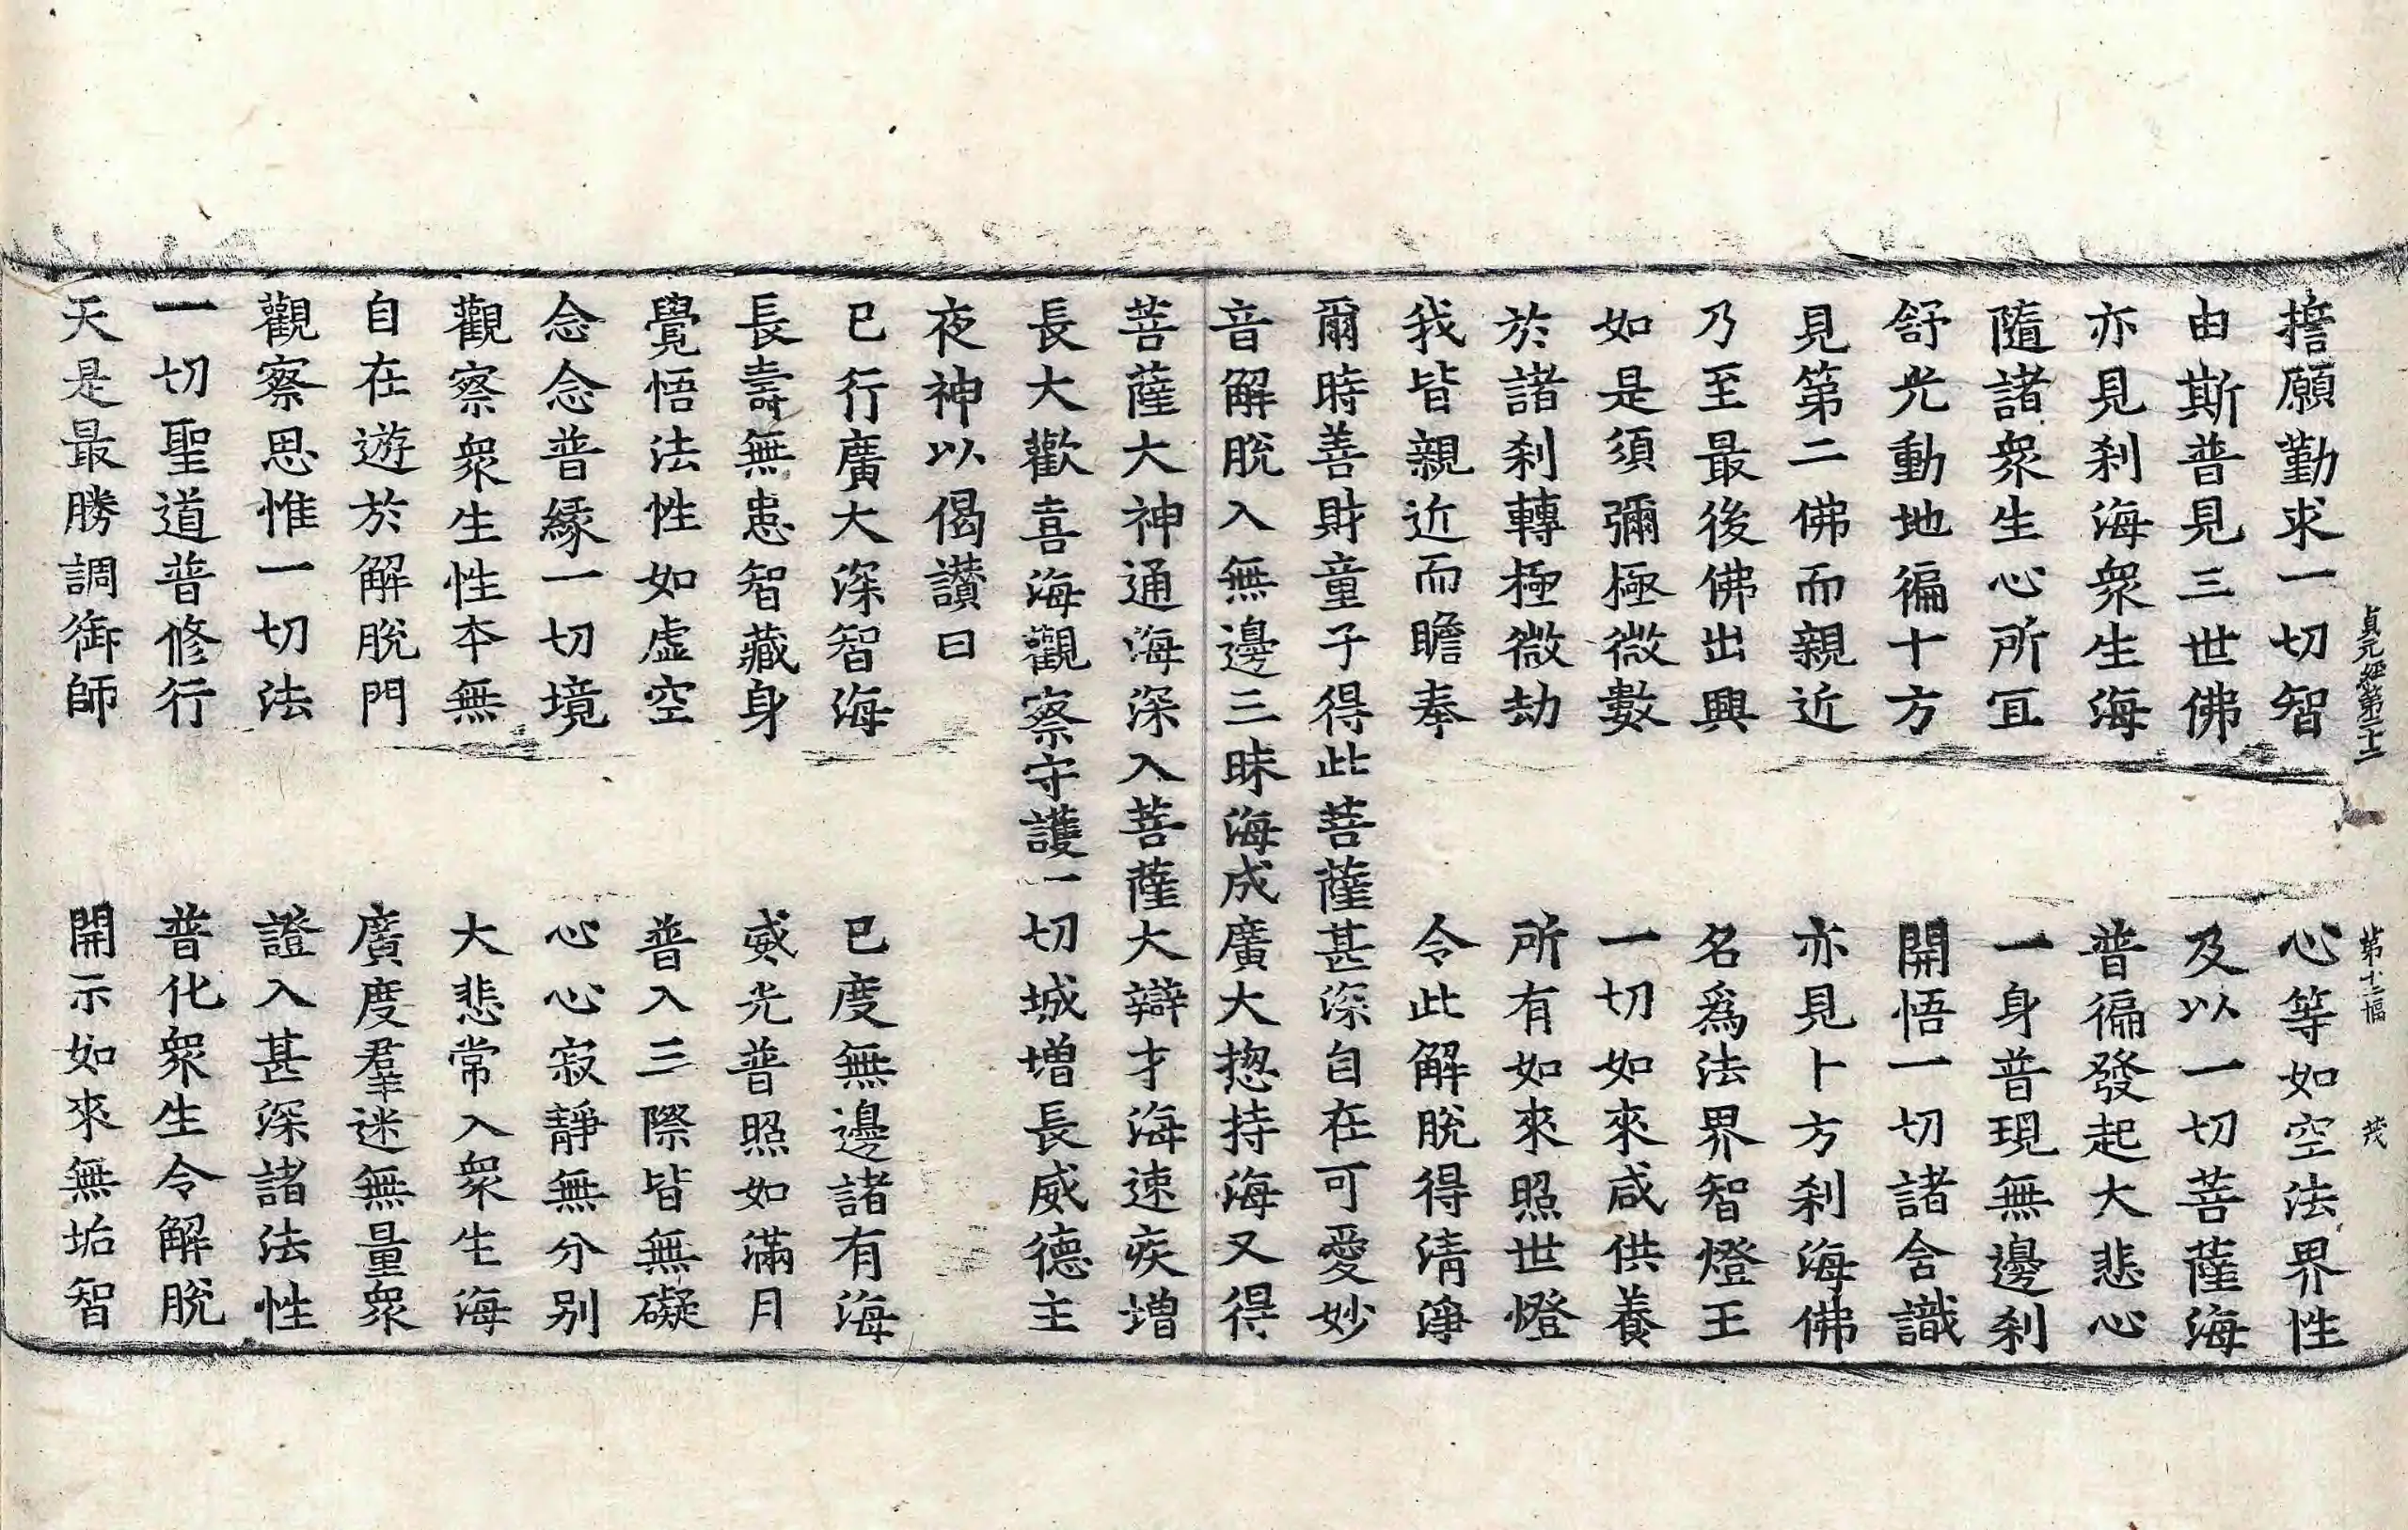 貞元經第二十二 第十二幅 茂
擔願勤求一切智 心等如空法界性
由斯普見三世佛 及以一切菩薩海
亦見刹海衆生海 普徧發起大悲心
隨諸衆生心所宜 一身普現無邊刹
舒光動地徧十方 開悟一切諸含識
見第二佛而親近 亦見十方刹海佛
乃至最後佛出興 名爲法界智燈王
如是須彌極微數 一切如來咸供養
於諸刹轉極微劫 所有如來照世燈
我皆親近而瞻奉 令此解脫得清淨
爾時善財童子得此菩薩甚深自在可愛妙
音解脫入無邊三昧海成廣大揔持海又得
菩薩大神通海深入菩薩大辯才海速疾增
長大歡喜海觀察守護一切城增長威德主
夜神以偈讚曰
已行廣大深智海 已度無邊諸有海
長壽無患智藏身 威光普照如滿月
覺悟法性如虛空 普入三際皆無礙
念念普緣一切境 心心寂靜無分别
觀察衆生性本無 大悲常入衆生海
自在遊於解脫門 廣度羣迷無量衆
觀察思惟一切法 證入甚深諸法性
一切聖道普修行 普化衆生令解脫
天是最勝調御師 開示如來無垢智